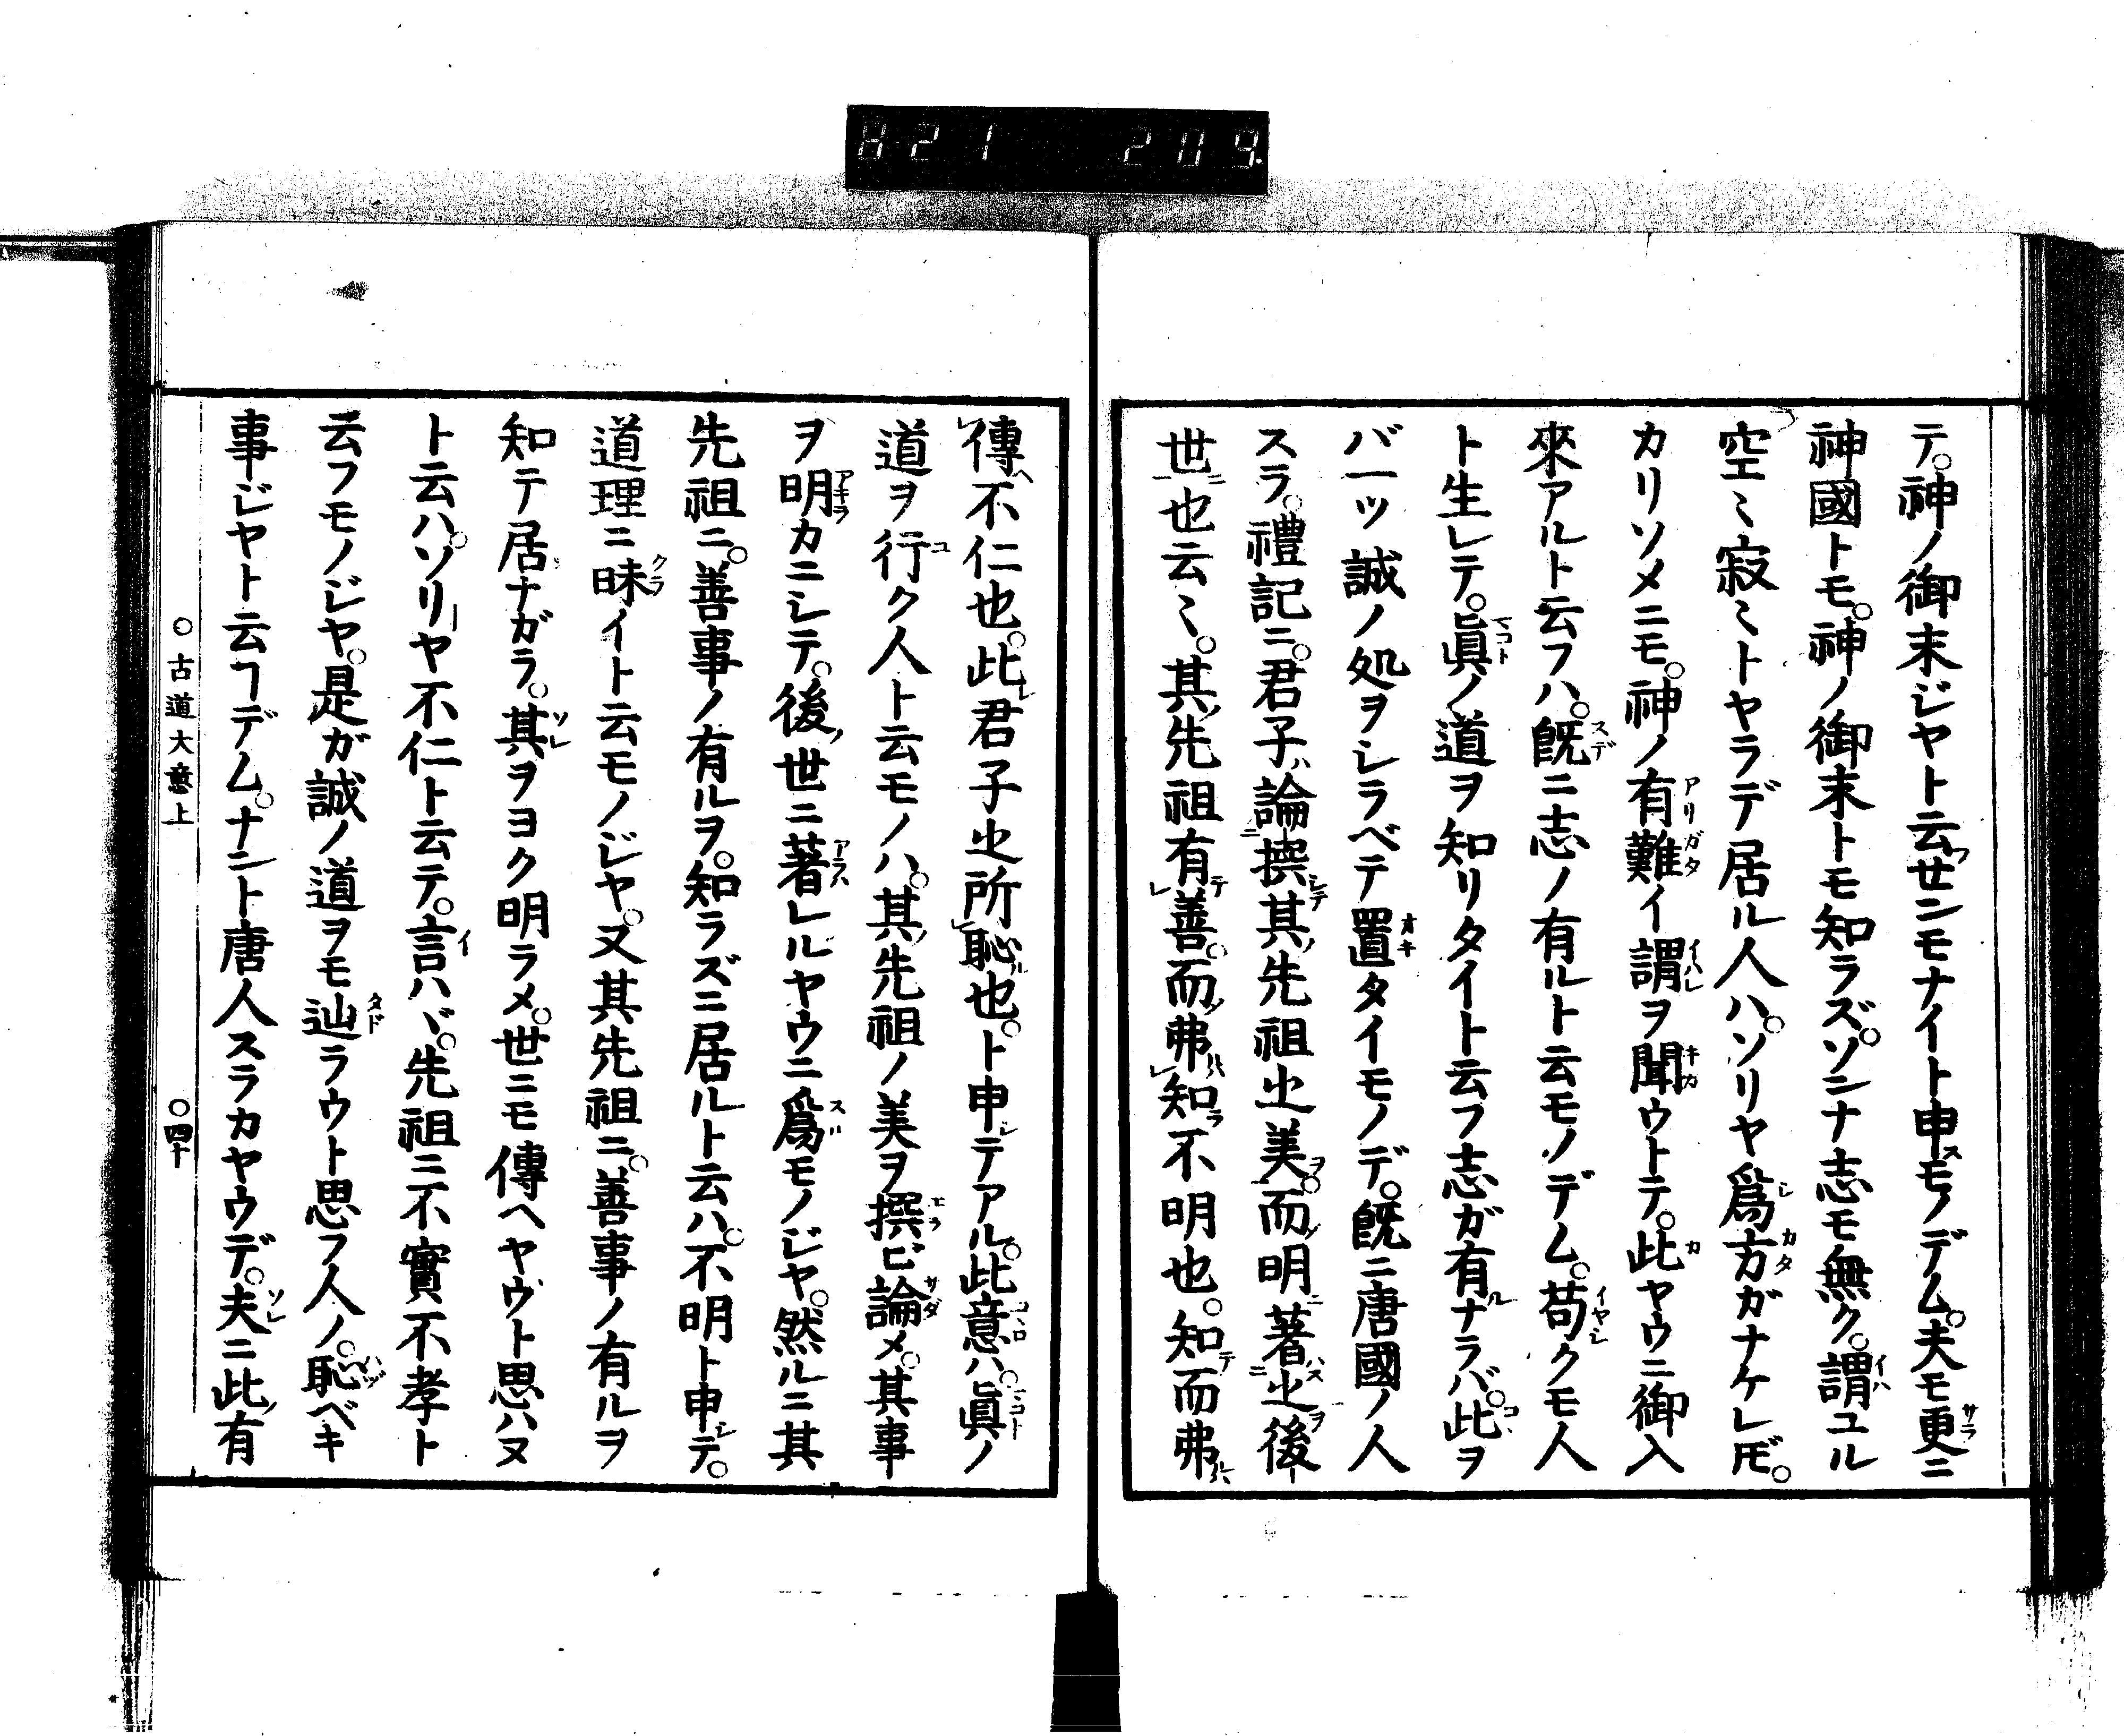 821 209
テ。神ノ御末ジヤト云フセンモナイト申スモノデム。夫モ更ニ
神國トモ。神ノ御末トモ知ラズ。ソンナ志モ無ク。謂ユル
空〻寂〻トヤラデ居ル人ハ。ソリヤ爲方ガナケレ𪜈。
カリソメニモ。神ノ有難イ謂ヲ聞ウトテ。此ヤウニ御入
來アルト云フハ。旣ニ志ノ有ルト云モノデム。苟クモ人
ト生レテ。眞ノ道ヲ知リタイト云フ志ガ有ルナラバ。此ヲ
バ一ツ誠ノ処ヲシラベテ置タイモノデ。旣ニ唐國ノ人
スラ。禮記ニ。君子ハ論撰其先祖之美。而明著之後
世也云〻。其先祖有善。而弗知不明也。知而弗
傳不仁也。此君子之所恥也。ト申シテアル。此意ハ。眞ノ
道ヲ行ク人ト云モノハ。其先祖ノ美ヲ撰ビ論メ。其事
ヲ明カニシテ。後世ニ著レルヤウニ爲モノジヤ。然ルニ其
先祖ニ。善事ノ有ルヲ。知ラズニ居ルト云ハ。不明ト申シテ。
道理ニ昧イト云モノジヤ。又其先祖ニ。善事ノ有ルヲ
知テ居ナガラ。其ヲヨク明ラメ。世ニモ傳ヘヤウト思ハヌ
ト云ハ。ソリヤ不仁ト云テ。言ハヾ。先祖ニ不實不孝ト
云フモノジヤ。是ガ誠ノ道ヲモ辿ラウト思フ人ノ。恥ベキ
事ジヤト云ヿデム。ナント唐人スラカヤウデ。夫ニ此有
○古道大意上 ○四十